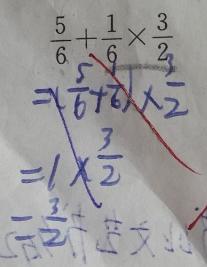 5/6 + 1/6 × 3/2
= (5/6 + 1/6) × 3/2
= 1 × 3/2
= 3/2